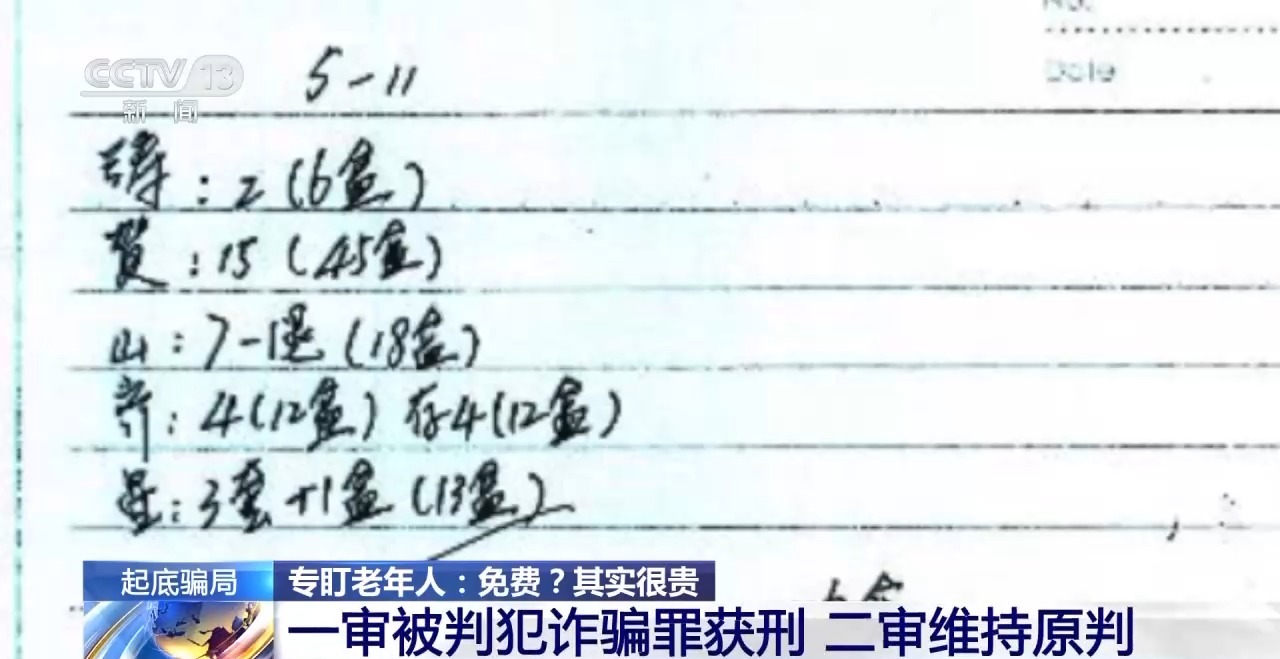 No.
CCTV 13
新闻
Date
5-11
:2(6盒)
贺:15(45盒)
山:7-1退(18盒)
齐:4(12盒) 存4(12盒)
星:3套+1盒(13盒)
起底骗局
专盯老年人:免费?其实很贵
一审被判犯诈骗罪获刑 二审维持原判